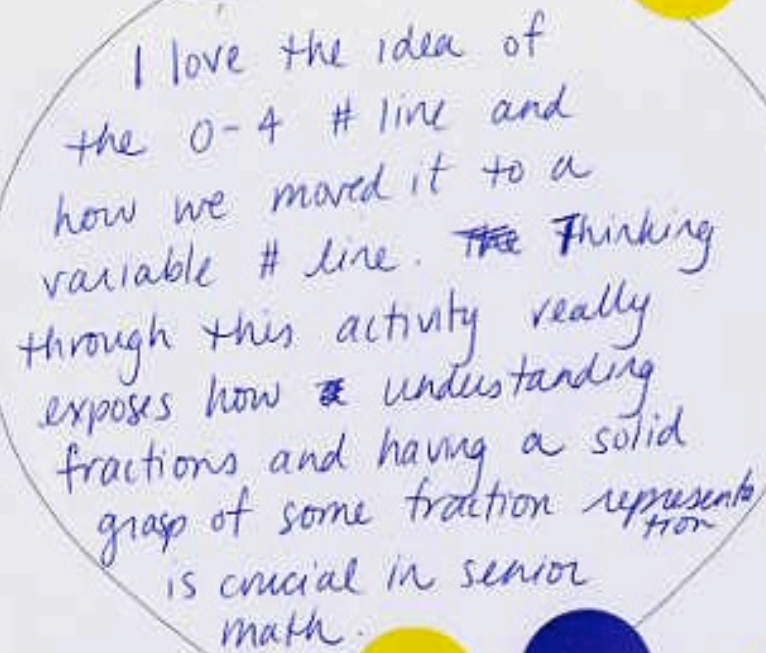 I love the idea of
the 0-4 # line and
how we moved it to a
variable # line. Thinking
through this activity really
exposes how understanding
fractions and having a solid
grasp of some fraction representa
tion
is crucial in senior
math.